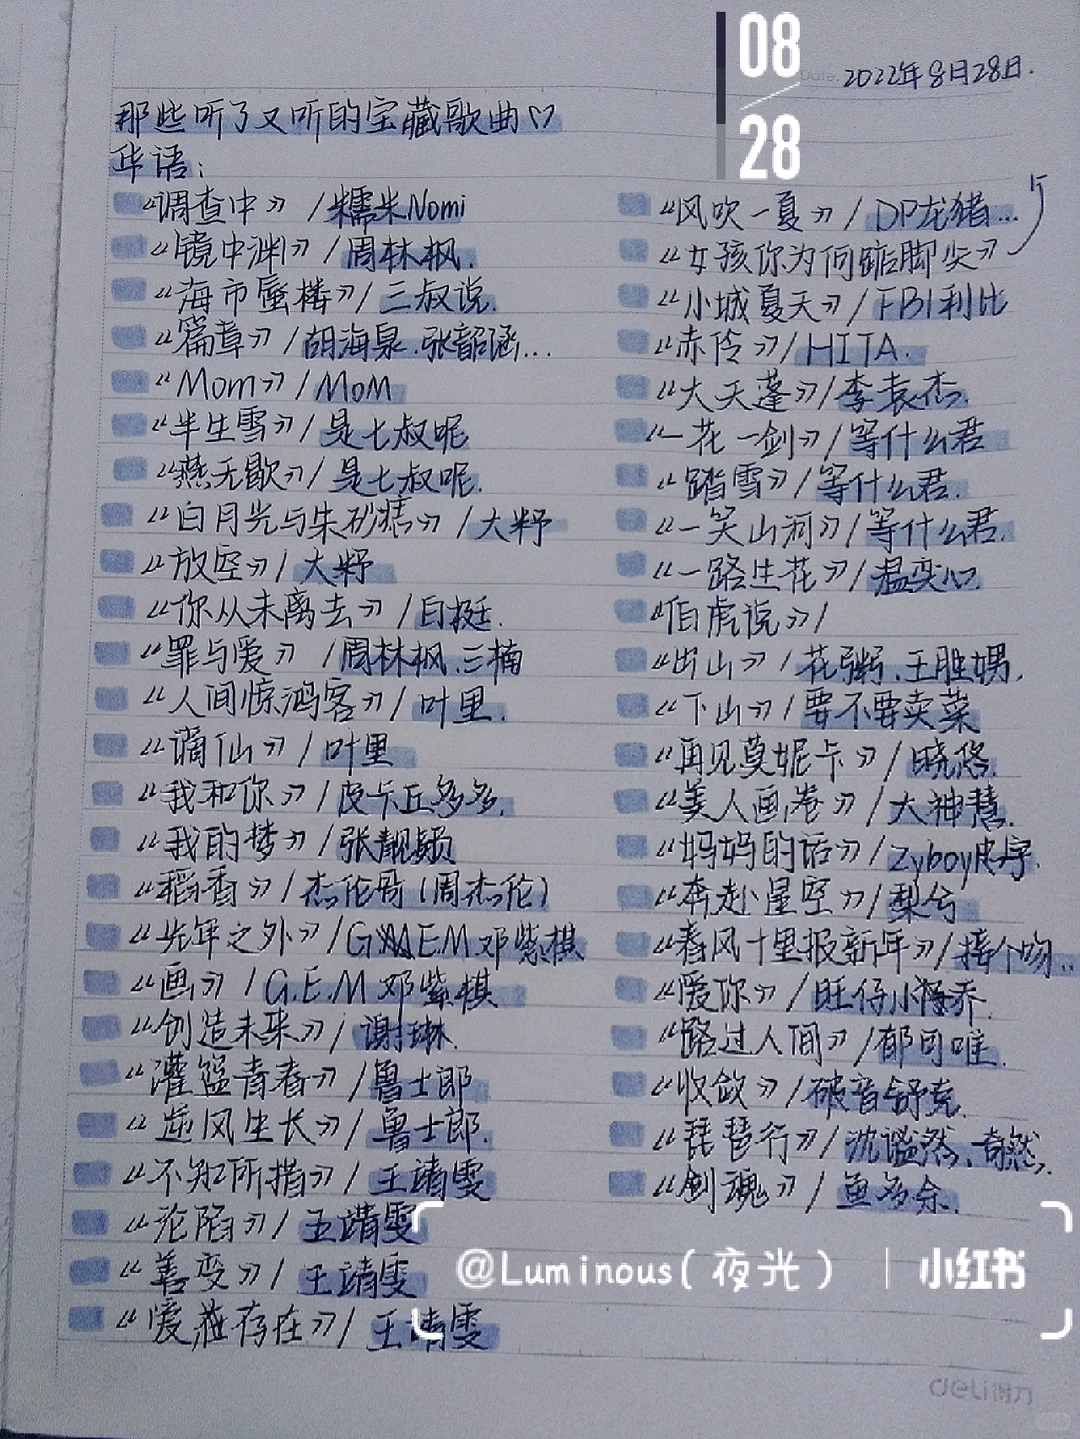 08
28
Date.
2022年8月28日.
那些听了又听的宝藏歌曲♡
华语:
《调查中》/糯米Nomi
《镜中渊》/周林枫.
《海市蜃楼》/三叔说.
《篇章》/胡海泉.张韶涵...
《Mom》/MoM
《半生雪》/是七叔呢
《燕无歇》/是七叔呢.
《白月光与朱砂痣》/大籽
《放空》/大籽
《你从未离去》/白挺.
《罪与爱》/周林枫.三楠
《人间惊鸿客》/叶里.
《谪仙》/叶里
《我和你》/皮卡丘多多.
《我的梦》/张靓颖
《稻香》/杰伦哥(周杰伦)
《光年之外》/G.E.M邓紫棋
《画》/G.E.M邓紫棋
《创造未来》/谢琳.
《灌篮青春》/鲁士郎
《逆风生长》/鲁士郎.
《不知所措》/王靖雯
《沦陷》/王靖雯
《善变》/王靖雯
《爱存在》/王靖雯
《风吹一夏》/DP龙猪...
《女孩你为何踮脚尖》
《小城夏天》/FBI利比
《赤伶》/HITA.
《大天蓬》/李袁杰.
《一花一剑》/等什么君
《踏雪》/等什么君.
《一笑山河》/等什么君.
《一路生花》/温奕心.
《伯虎说》/
《出山》/花粥.王胜娚.
《下山》/要不要卖菜
《再见莫妮卡》/晓悠.
《美人画卷》/大神慧.
《妈妈的话》/Zyboy忠宇.
《奔赴星空》/梨兮
《春风十里报新年》/接个吻..
《爱你》/旺仔小乔.
《路过人间》/郁可唯.
《收敛》/破音舒克.
《琵琶行》/沈谧然、奇然.
《剑魂》/鱼多余.
@Luminous(夜光) | 小红书
deli得力